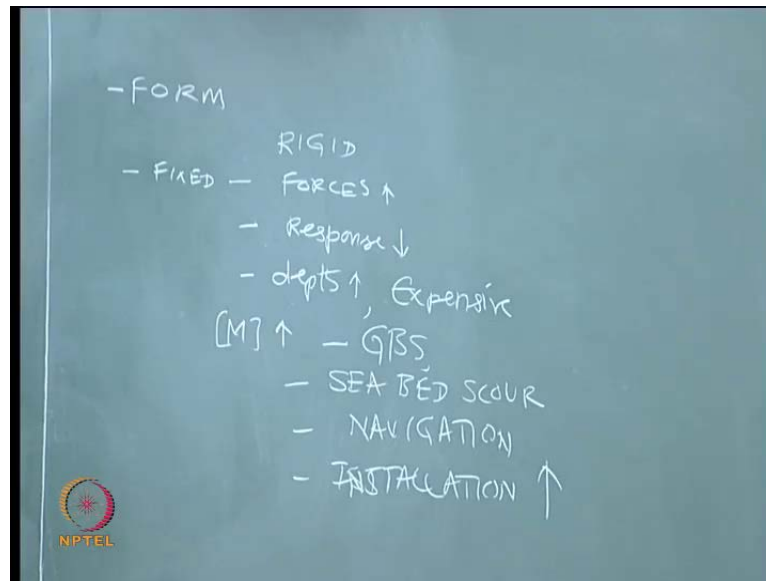 - FORM
RIGID
- FIXED - FORCES ↑
- Response ↓
- depts ↑, Expensive
[M] ↑ - GBS
- SEA BED SCOUR
- NAVIGATION
- INSTALLATION ↑
NPTEL